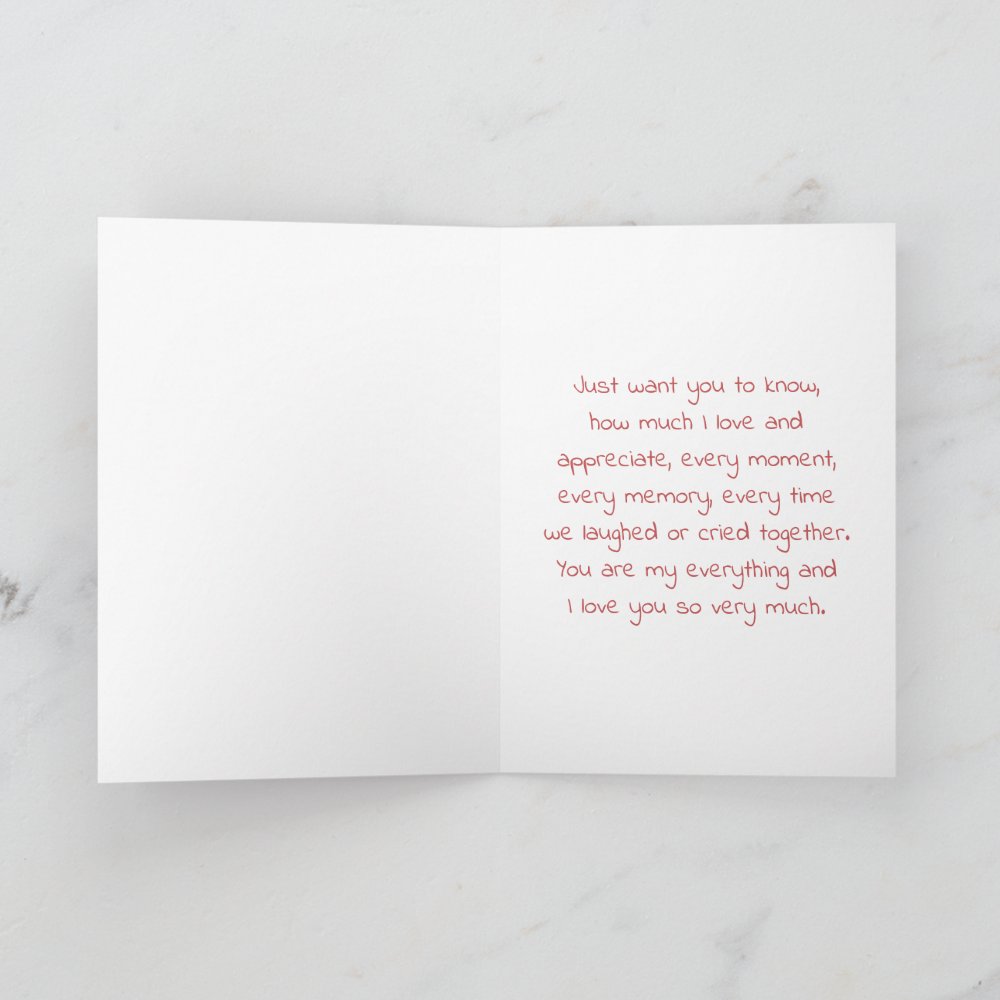 Just want you to know,
how much I love and
appreciate, every moment,
every memory, every time
we laughed or cried together.
You are my everything and
I love you so very much.